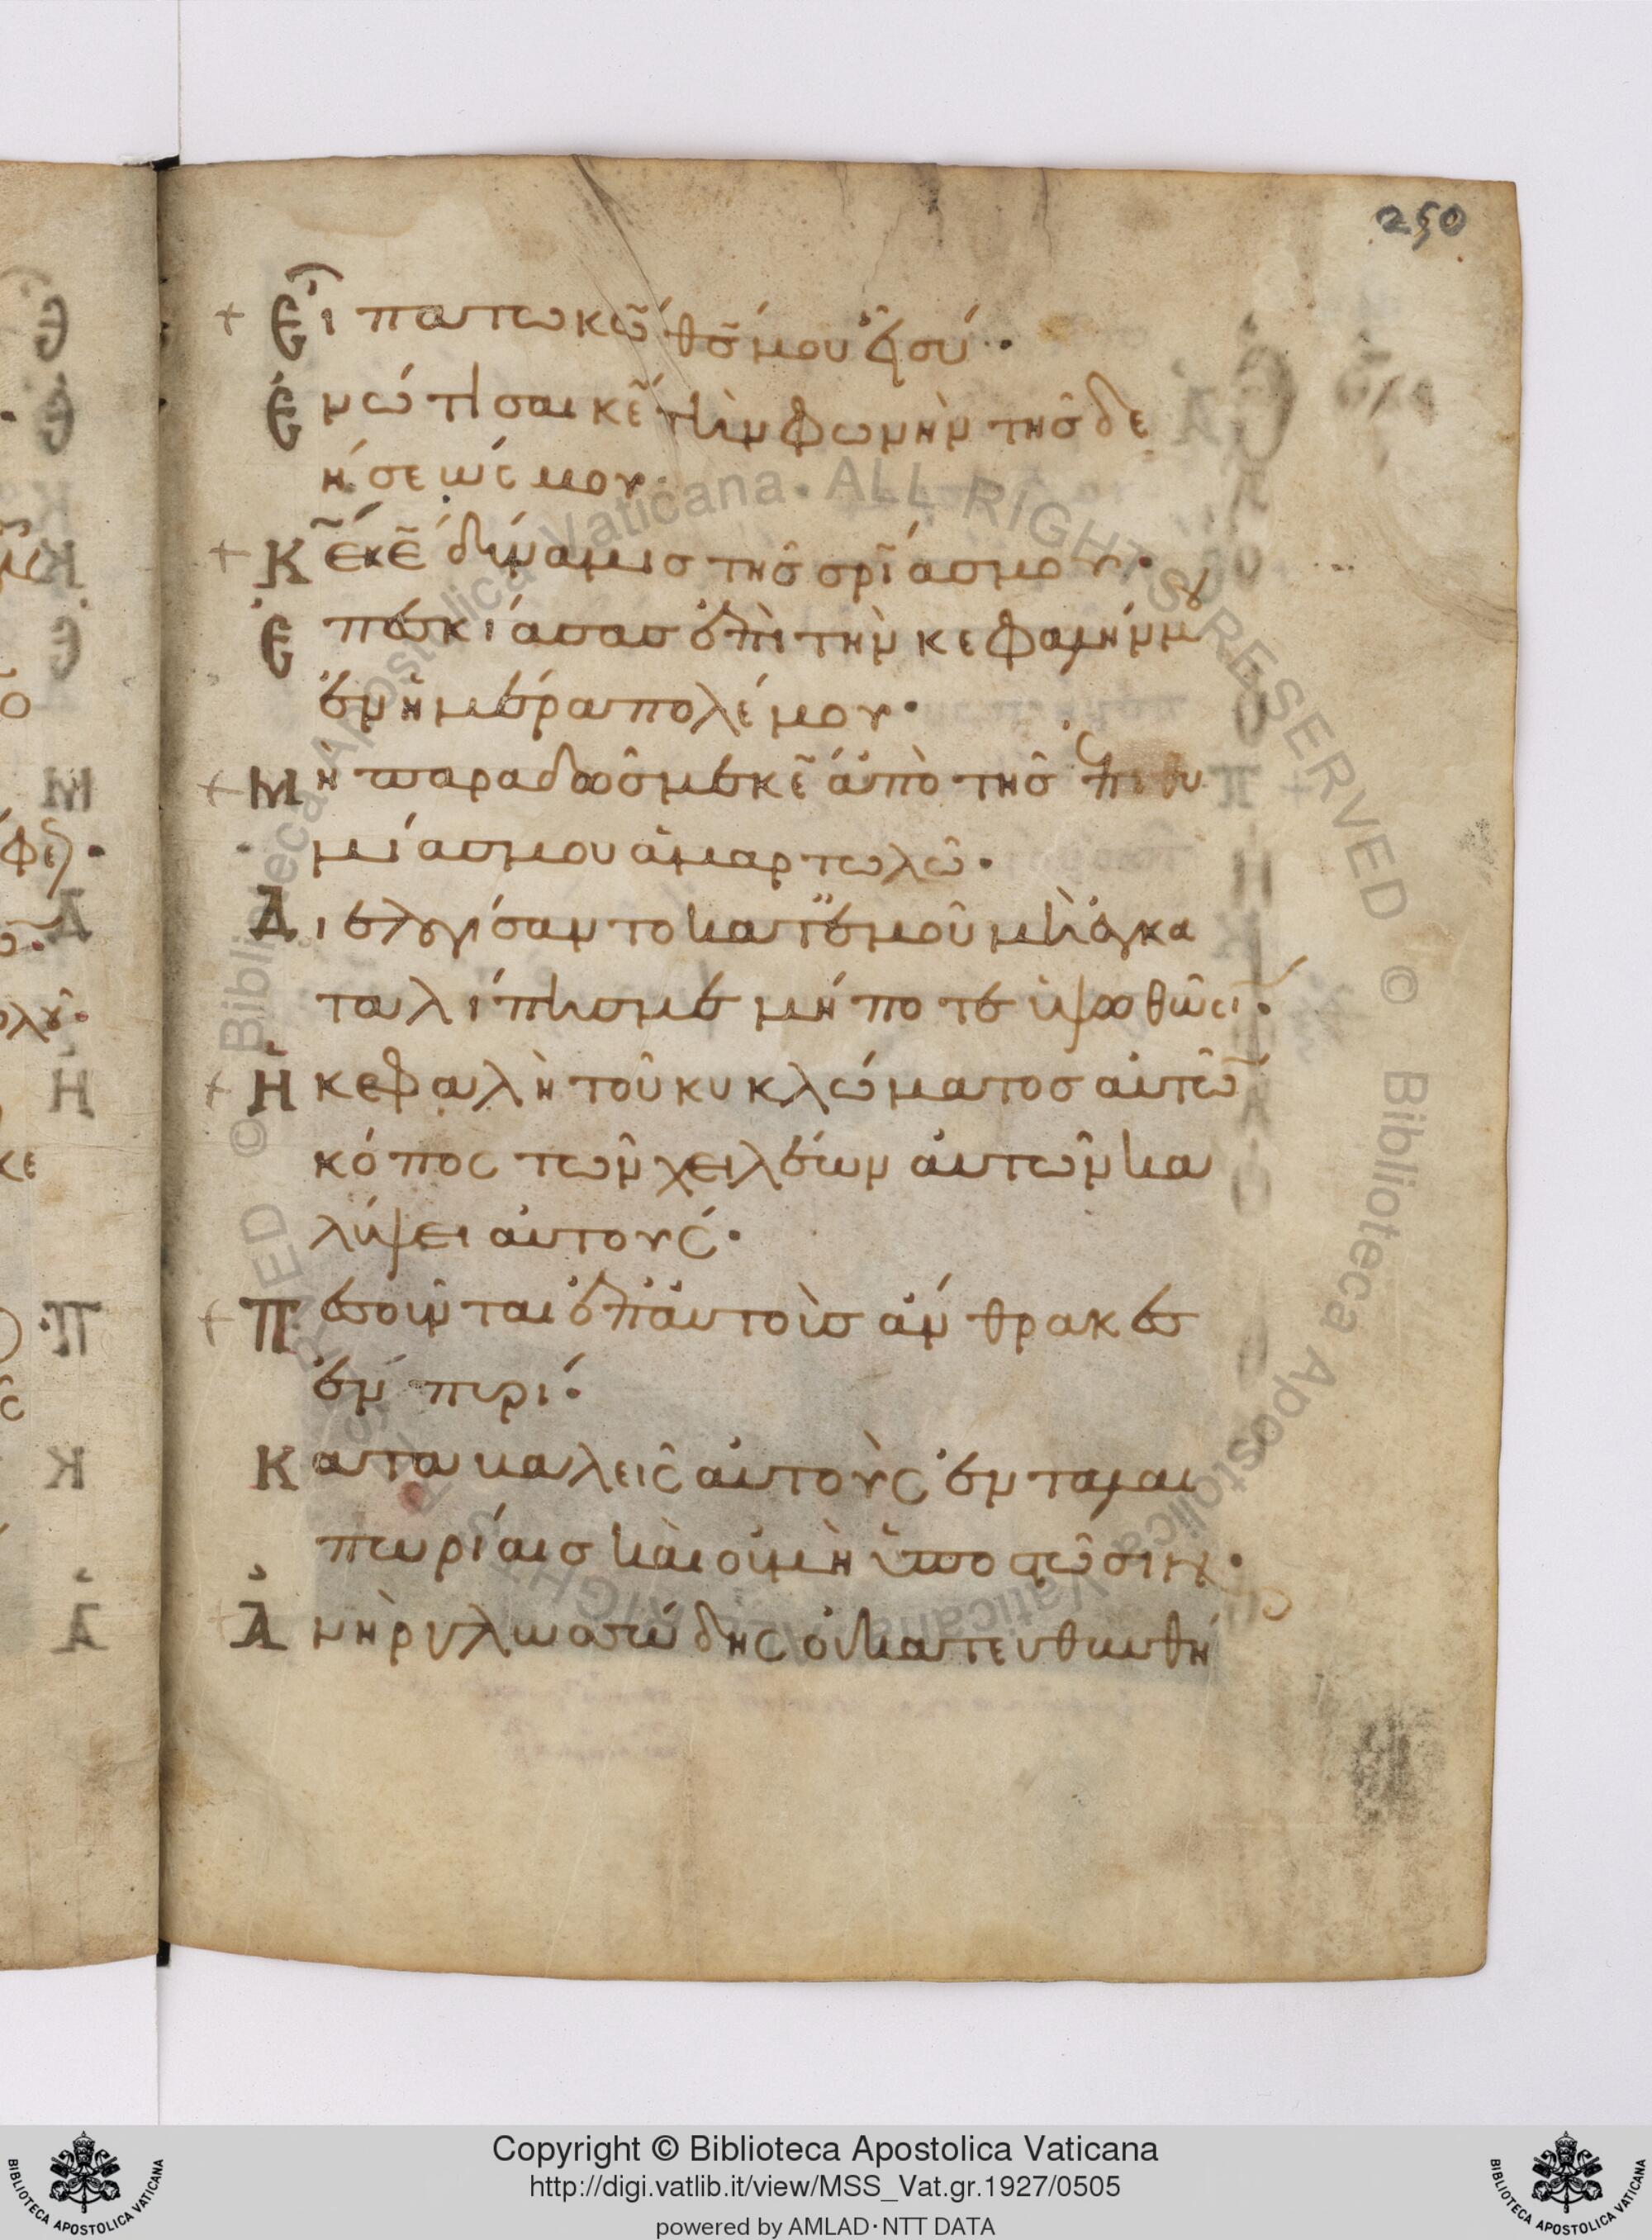 250
Εἶπα τῷ κ̅ω̅ θ̅ς̅ μου εἶ σύ·
Ἐνώτισαι κ̅ε̅ τὴν φωνὴν τῆς δε
ήσεώς μου·
Κ̅ε̅ κ̅ε̅ δύναμις τῆς σ̅ρ̅ι̅ας μου·
Ἐπεσκίασας ἐπὶ τὴν κεφαλήν μου
ἐν ἡμέρα πολέμου·
Μὴ παραδῶς με κ̅ε̅ ἀπὸ τῆς ἐπιθυ
μίας μου ἁμαρτωλῶ·
Διελογίσαντο κατ' ἐμοῦ μὴ ἐγκα
ταλίπης με μήποτε ὑψωθῶσι·
Ἡ κεφαλὴ τοῦ κυκλώματος αὐτῶ
κόπος τῶν χειλέων αὐτῶν κα
λύψει αὐτούς·
Πεσοῦνται ἐπ' αὐτοὺς ἄνθρακες
ἐν πυρί·
Καταβαλεῖς αὐτοὺς ἐν ταλαι
πωρίαις καὶ οὐ μὴ ὑποστῶσιν·
Ἀνὴρ γλωσσώδης οὐ κατευθυνθή
Copyright © Biblioteca Apostolica Vaticana
http://digi.vatlib.it/view/MSS_Vat.gr.1927/0505
powered by AMLAD·NTT DATA
BIBLIOTECA APOSTOLICA VATICANA
BIBLIOTECA APOSTOLICA VATICANA